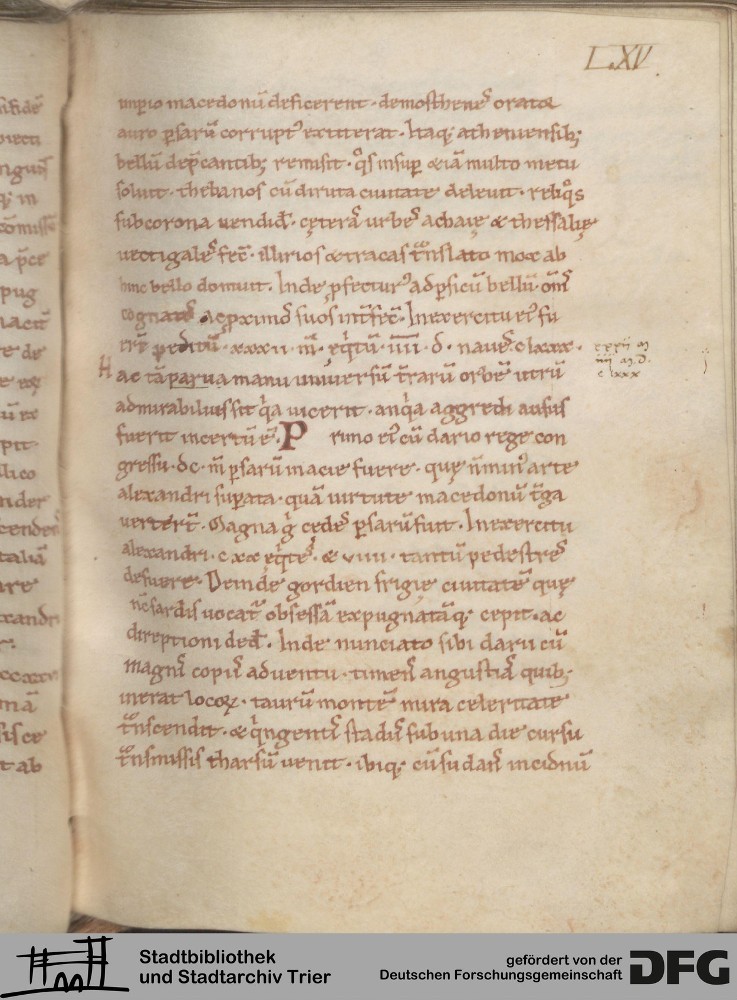 LXV.
imp̄io macedonū deficerent · demosthenes orator
auro p̄sarū corrupt᾽ extiterat · Itaq; atheniensib;
bellū dep̄cantib; remisit · q̊s insup̄ &iā multo metu
soluit · thebanos cū diruta ciuitate deleuit · reliq̊s
sub corona uendid̄ · cęteras urbes achaię & thessalię
uectigales fec̄ · illirios & tracas t̄nslato mox ab
hinc bello domuit. Inde p̄fectur᾽ ad p̄sicū bellū · om̄s
cognatos ac p̄ximos suos int̄fec̄ · In exercitu ei᾽ fu
er̄ peditū · xxxii · m̄ · eq̇tū · iiii · d · naues clxxx ·
xxxii m
iiii m. d.
clxxx
Hac tā parua manu uniuersū t̄rarū orbē utrū
admirabilius sit q̇a uicerit · an q̇a aggredi ausus
fuerit incertū ē · Primo ei᾽ cū dario rege con
gressu · dc · m̄ p̄sarū in acie fuere · quę n̄ min᾽ arte
alexandri sup̄ata · quā uirtute macedonū t̄ga
uertert̄ · Magna g̊ cedes p̄sarū fuit · In exercitu
alexandri · cxx eq̇tes · & viiii · tantū pedestres
defuere · Deinde gordien frigię ciuitatē quę
nc̄ sardis uocat̄ obsessā expugnatāq; cepit · ac
direptioni ded̄ · Inde nunciato sibi darii cū
magnis copiis aduentu · timens angustiā quib;
inerat locoꝝ · taurū montē mira celeritate
t̄nscendit · & q̇ngentis stadiis sub una die cursu
t̄nsmissis tharsū uenit · ibiq; cū sudans in cidnū
Stadtbibliothek
und Stadtarchiv Trier
gefördert von der
Deutschen Forschungsgemeinschaft
DFG